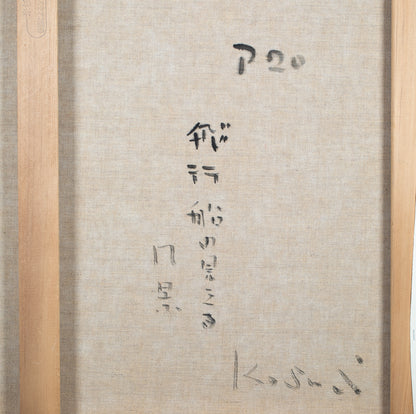 P20
飛行船の見える
風景
Kosugi